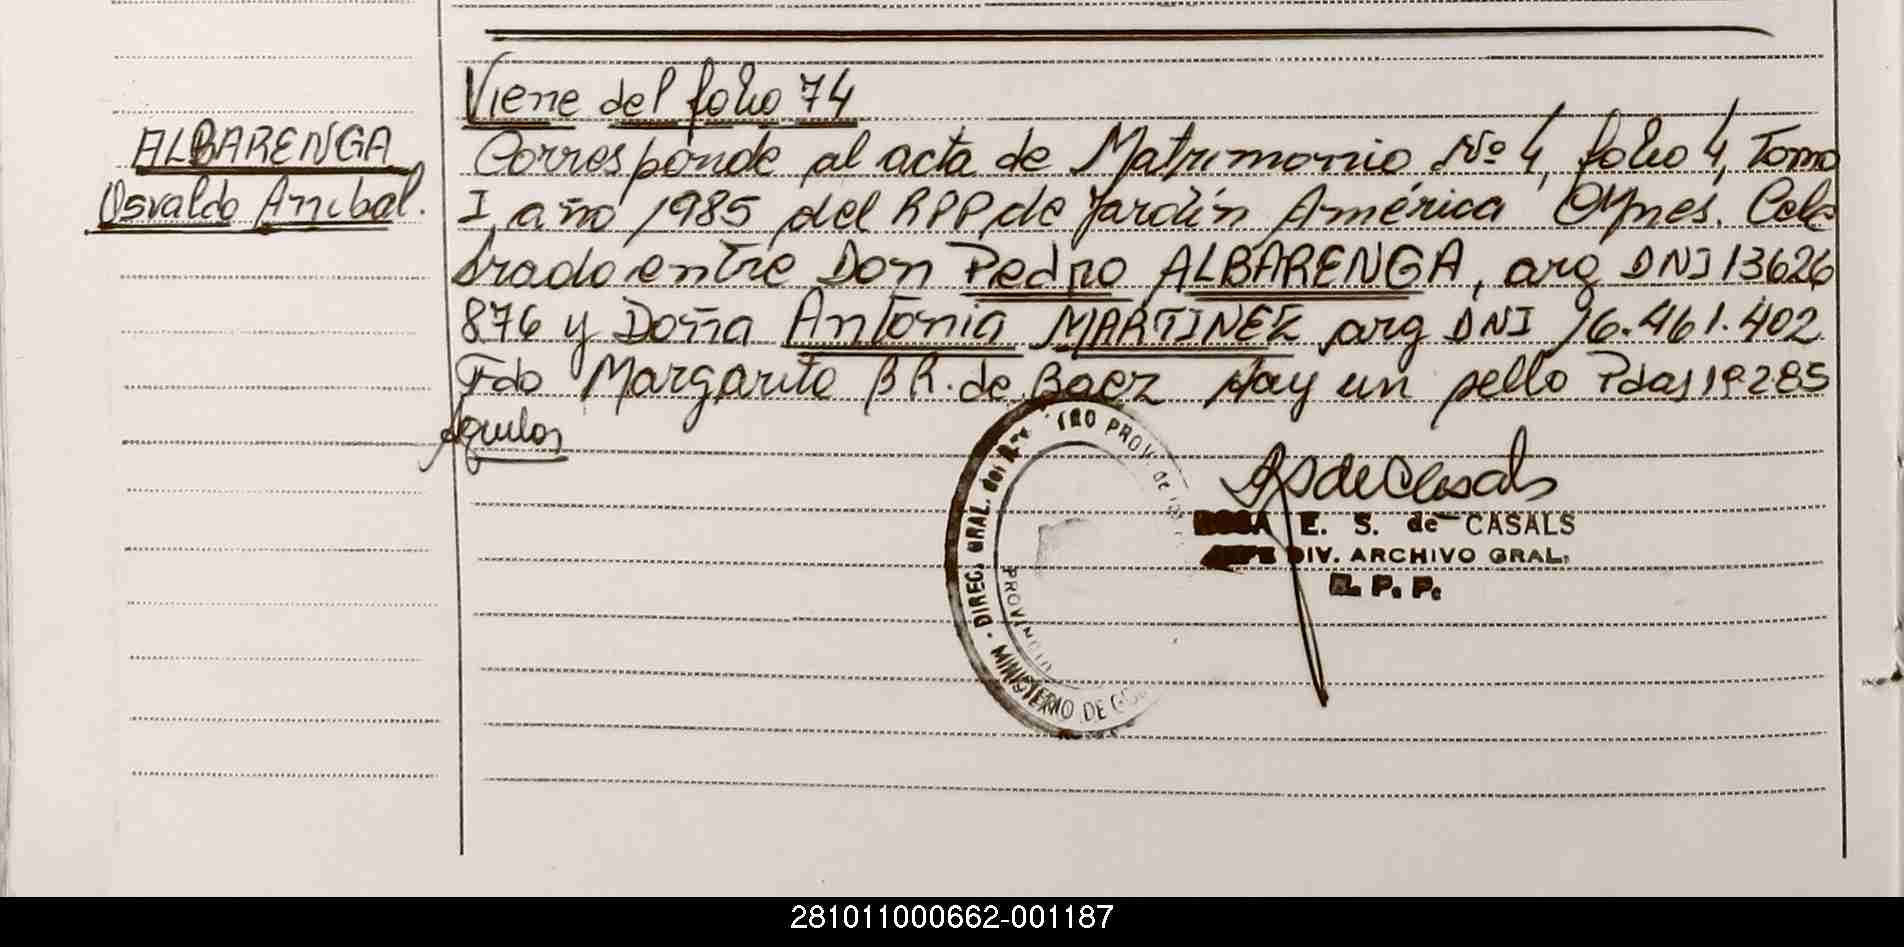 Viene del folio 74
ALBARENGA
Osvaldo Anibal.
Corresponde al acta de Matrimonio Nº 4, folio 4, Tomo
I año 1985 del RPP de Jardín América Mnes. Cele
brado entre Don Pedro ALBARENGA, arg DNI 13626
876 y Doña Antonia MARTINEZ arg DNI 16.461.402
Fdo Margarita B R. de Baez Hay un sello Pdas
E. S. de CASALS
DIV. ARCHIVO GRAL.
R. P. P.
DIREC. GRAL. del
PROV. de
MINISTERIO DE
281011000662-001187